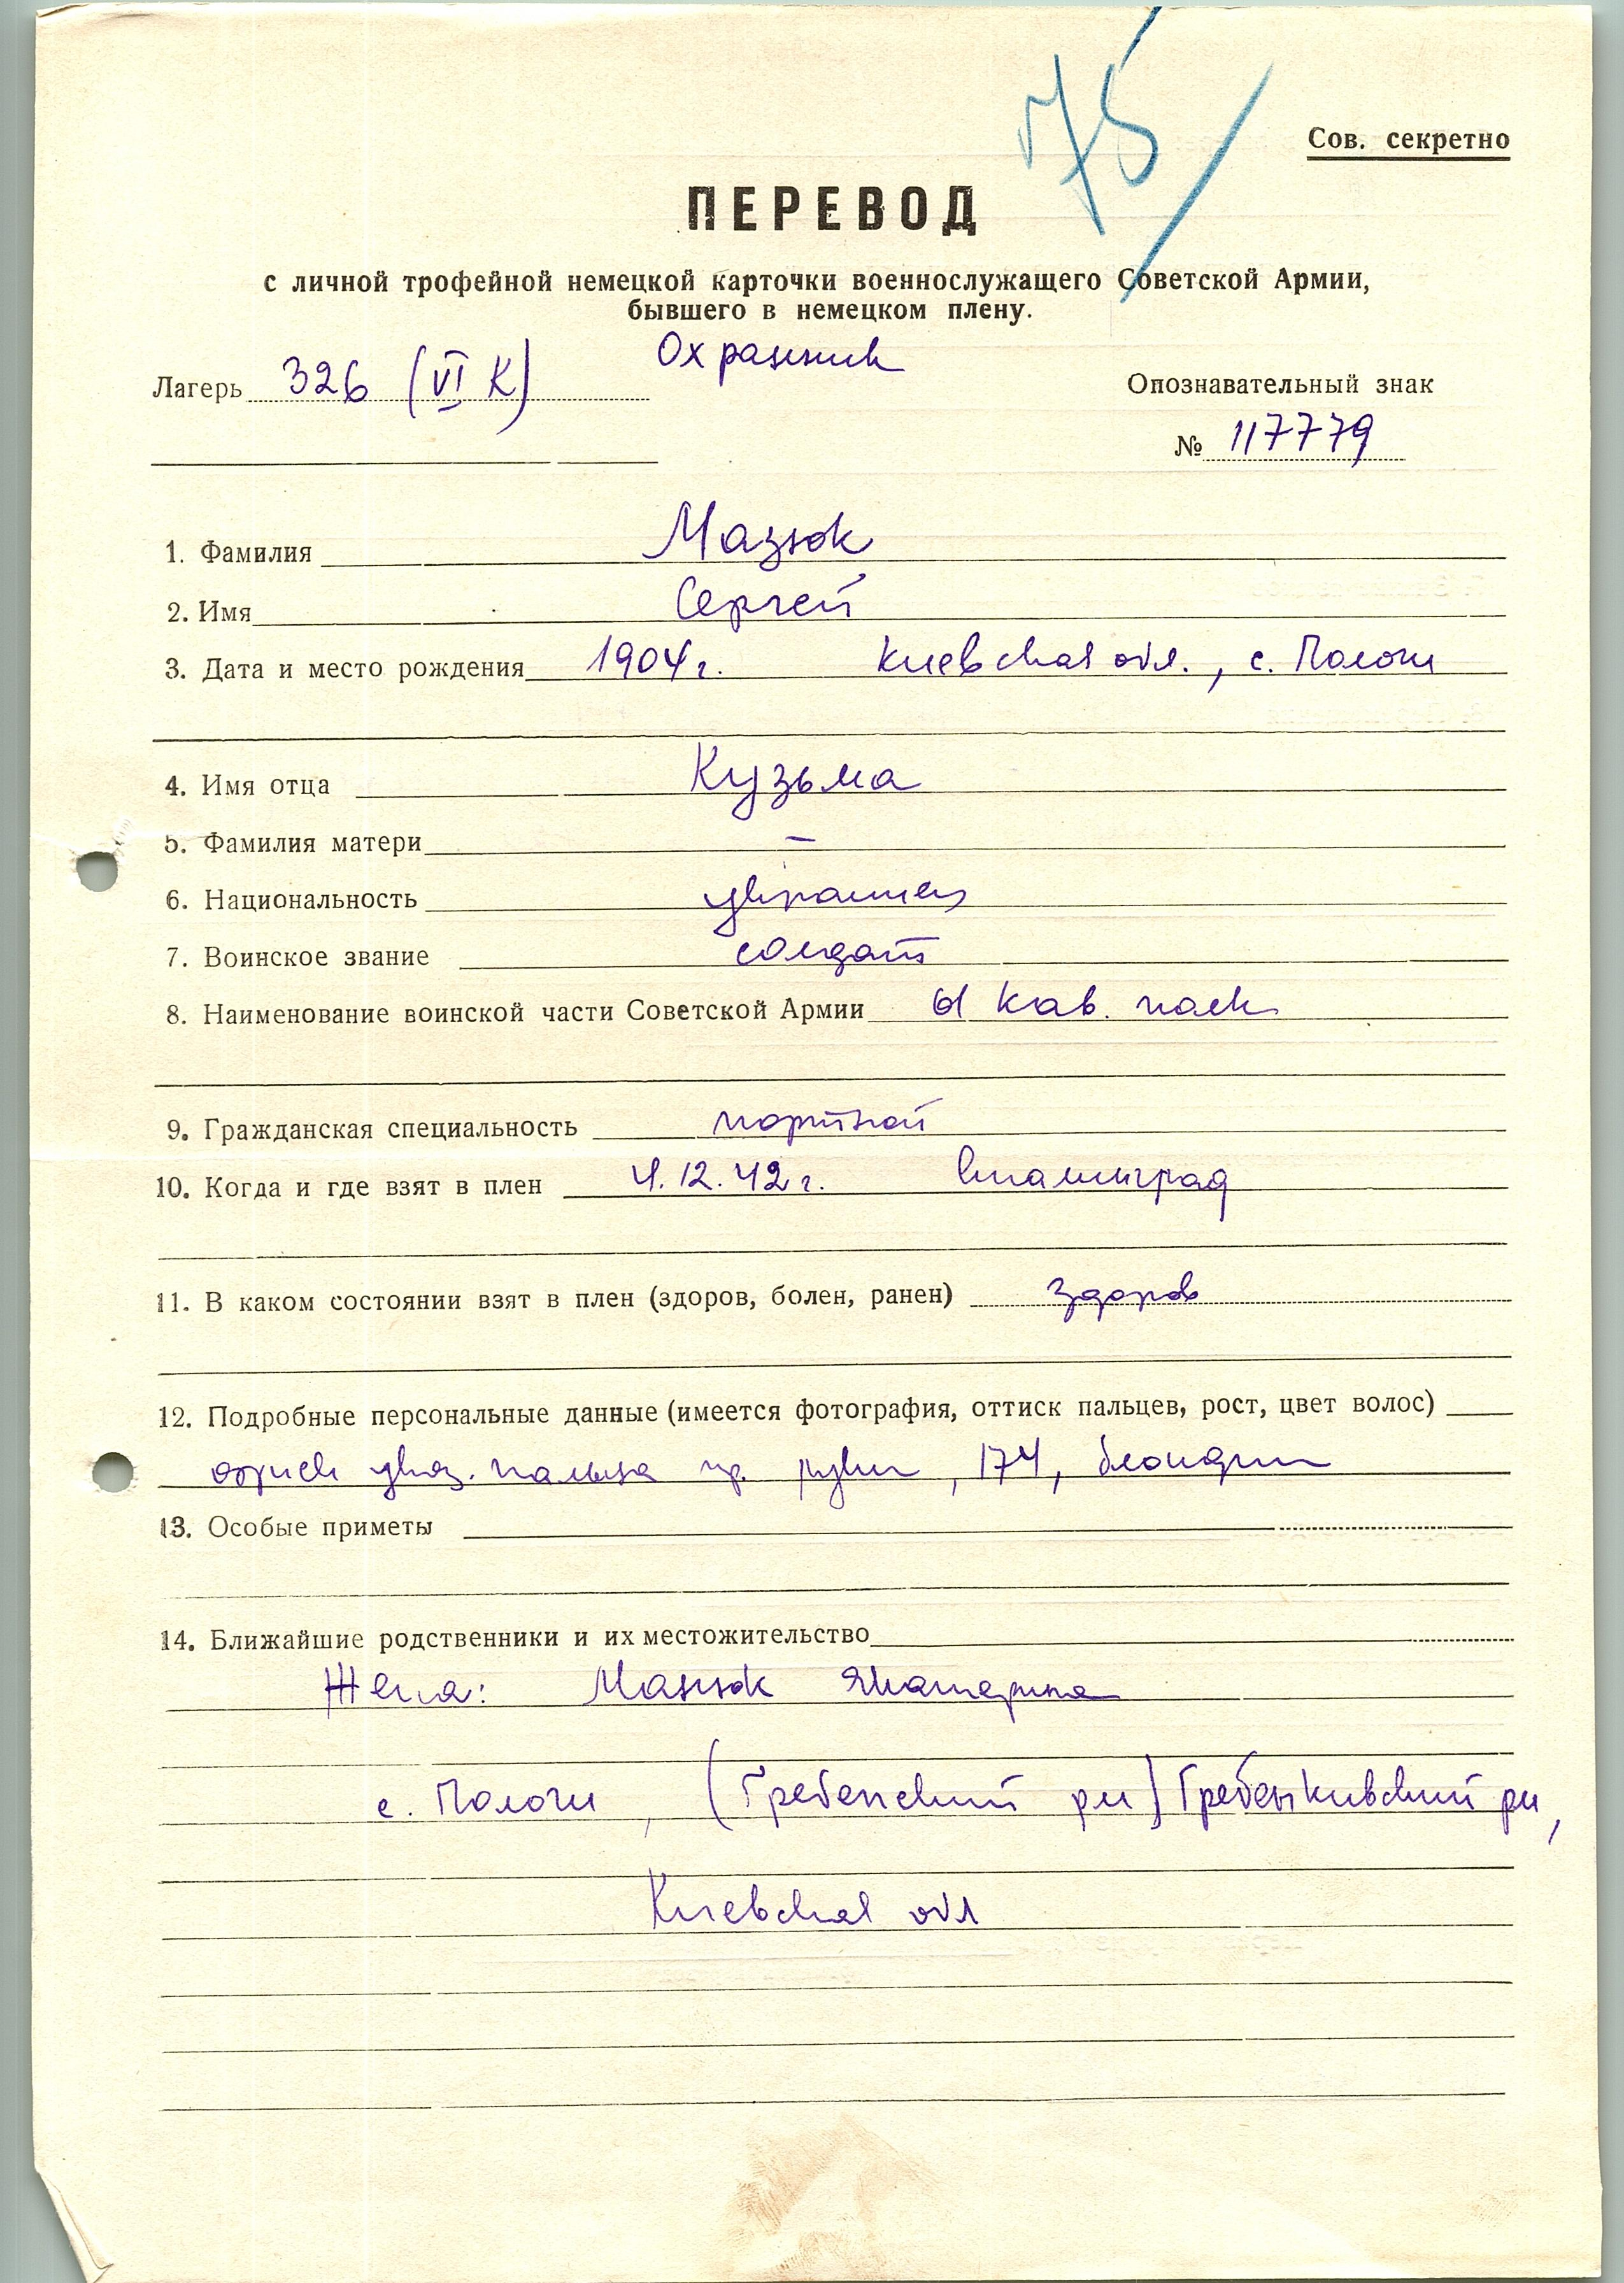 75/
Сов. секретно
ПЕРЕВОД
с личной трофейной немецкой карточки военнослужащего Советской Армии,
бывшего в немецком плену.
Охранник
Лагерь 326 (VI К)
Опознавательный знак
№ 117779
1. Фамилия Мазюк
2. Имя Сергей
3. Дата и место рождения 1904 г. Киевская обл., с. Пологи
4. Имя отца Кузьма
5. Фамилия матери –
6. Национальность украинец
7. Воинское звание солдат
8. Наименование воинской части Советской Армии 61 кав. полк
9. Гражданская специальность портной
10. Когда и где взят в плен 4.12.42 г. Сталинград
11. В каком состоянии взят в плен (здоров, болен, ранен) здоров
12. Подробные персональные данные (имеется фотография, оттиск пальцев, рост, цвет волос)
указ. пальца пр. руки, 174, блондин
13. Особые приметы
14. Ближайшие родственники и их местожительство
Жена: Мазюк Екатерина
с. Пологи, (Гребенский рн) Гребенкивский рн,
Киевская обл